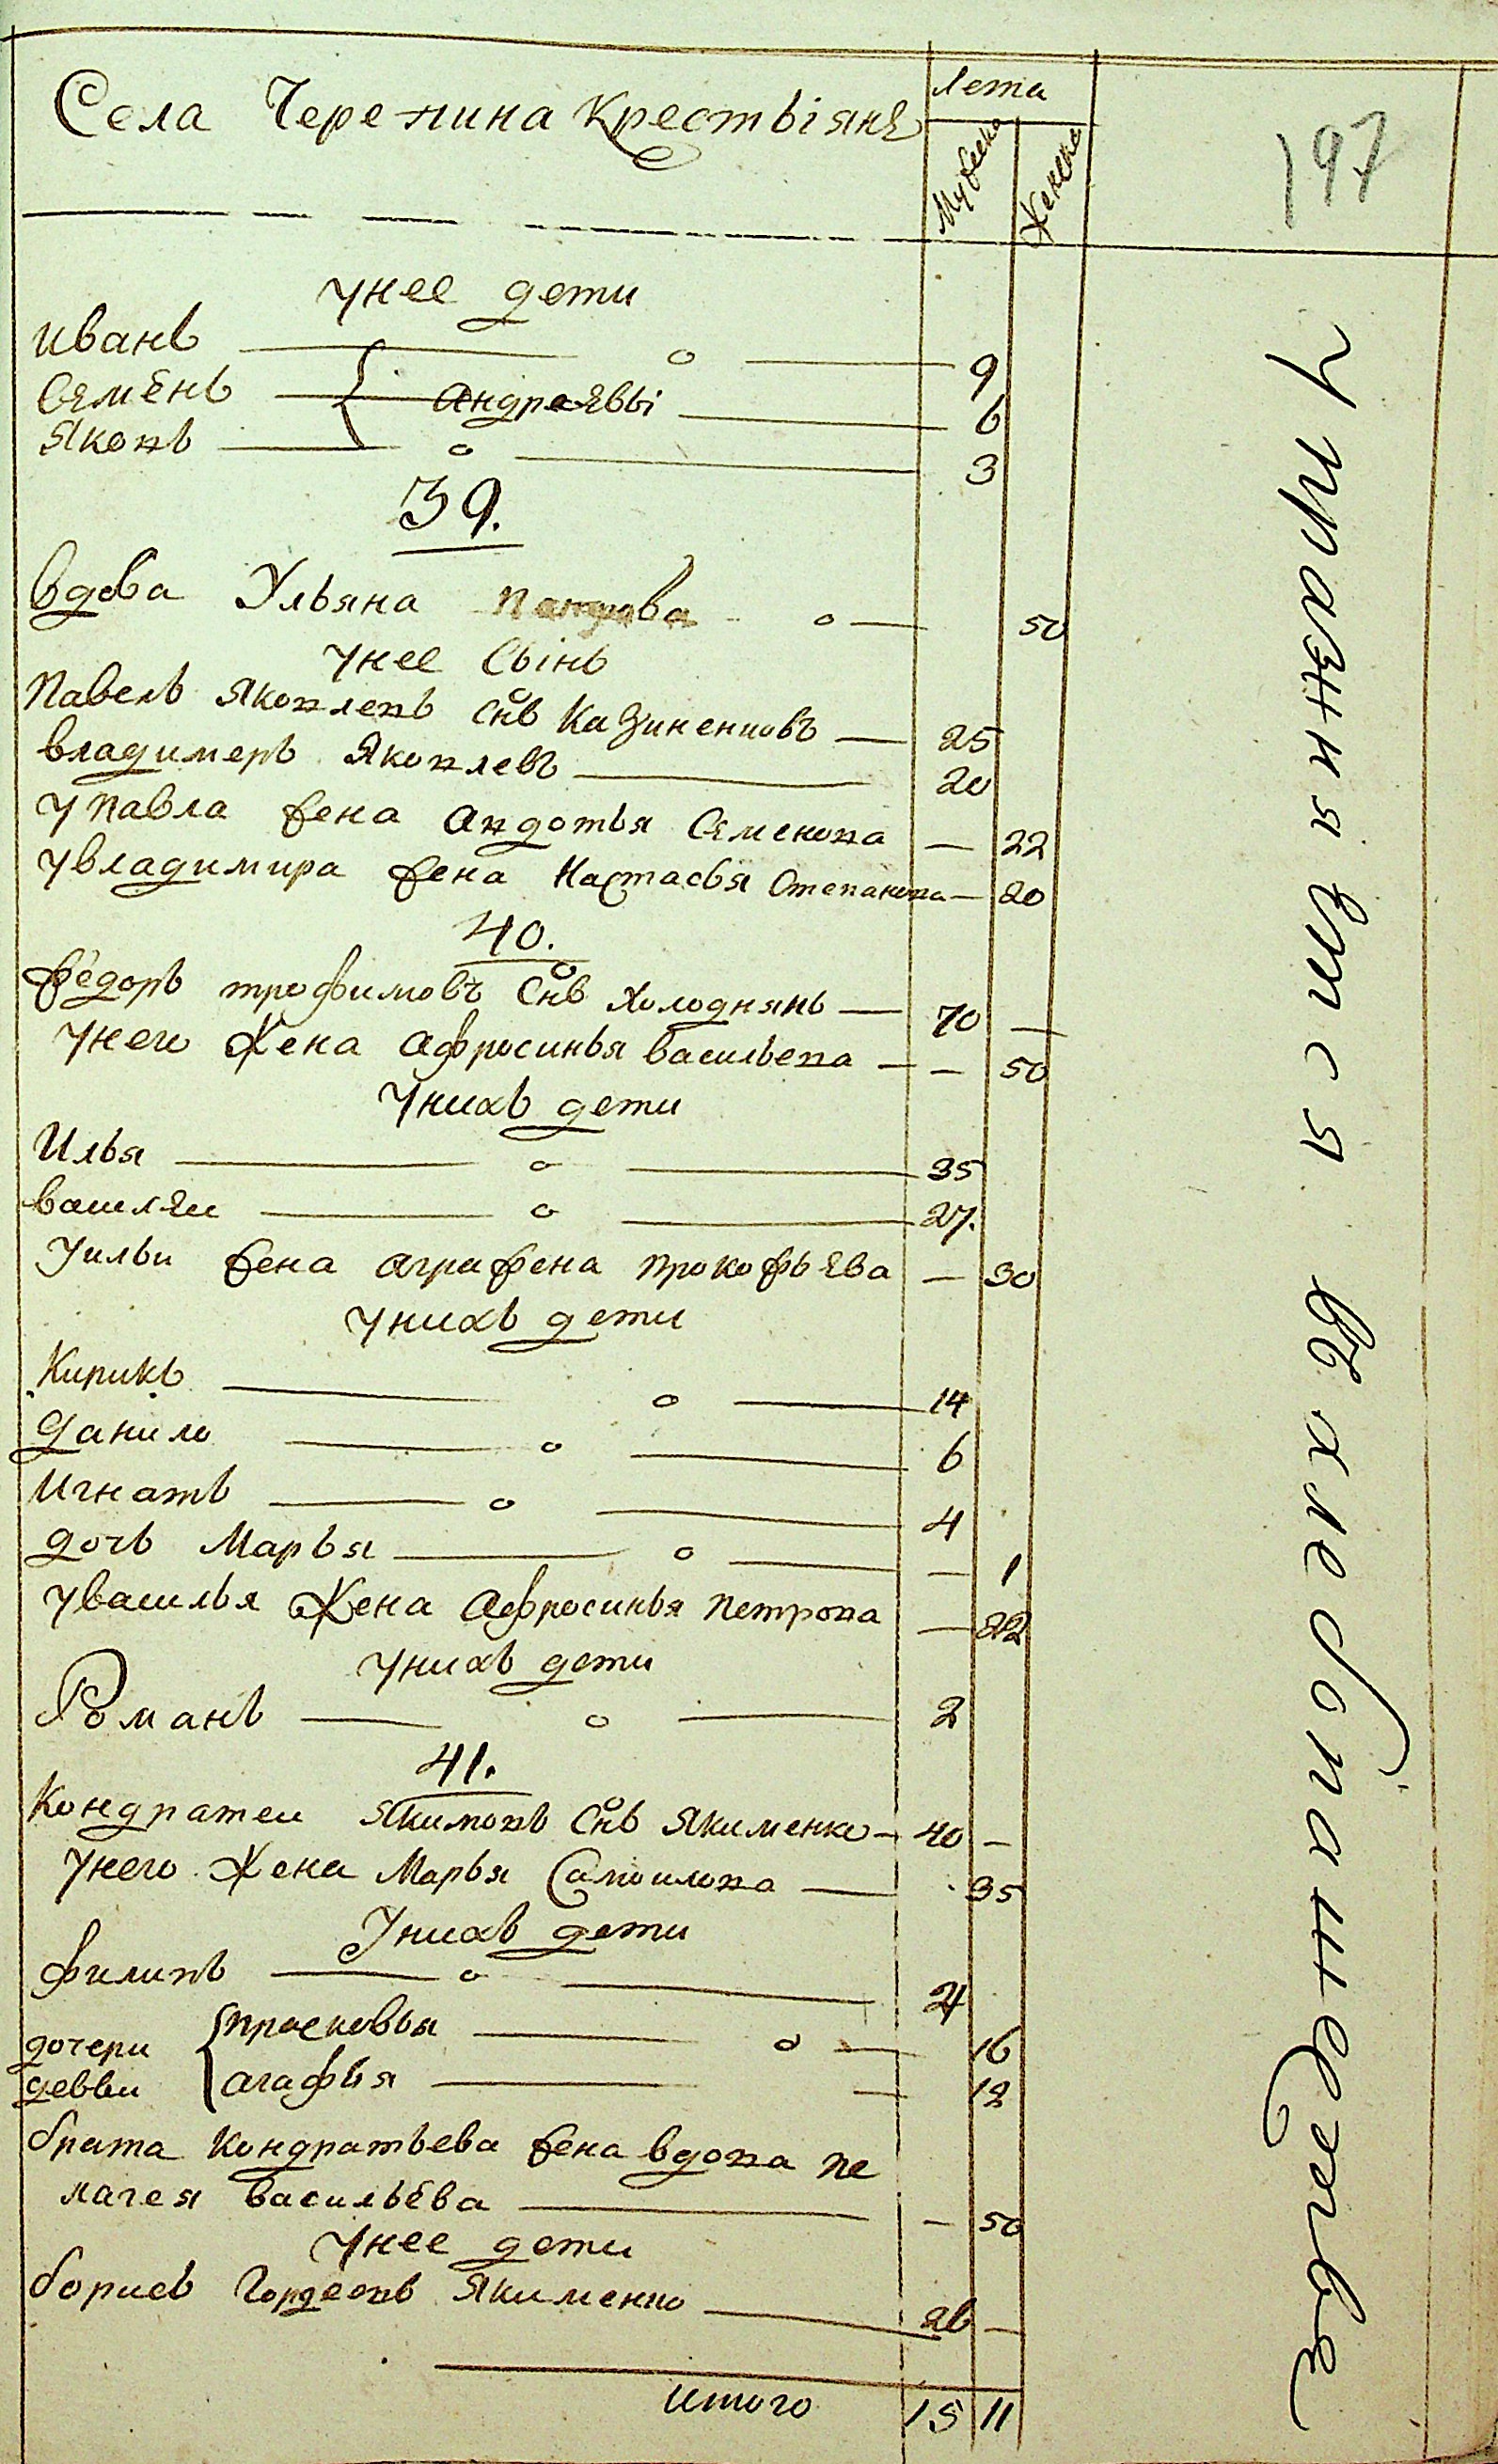 Села Черепина Крестьіяня
Лета
Мужеска
Женска
197
унее дети
иванъ 9
Семёнъ Андреявы 6
Якопъ 3
39.
вдова Ульяна 50
унее Сынъ
Павелъ Якоплепъ Снъ Казиненцовъ 25
владимеръ Якоплевъ 20
упавла жена Апдотья Семенопа 22
увладимира жена Настасья Степанопа 20
40.
федоръ трофимовъ Снъ Холоднянъ 70
Унего Жена Афросинья васильепа 50
Унихъ дети
Илья 35
василяи 27.
Уильи жена аграфена прокофьява 30
унихъ дети
Кирикъ 14
данило 6
Игнатъ 4
дочь Марья 1
увасилья Жена Афросинья Петропа 22
унихъ дети
Романъ 2
41.
Кондратеи Якимопъ Снъ Якименко 40
унего Жена Марья Самоилопа 35
Унихъ дети
филипъ 24
дочери прасковья 16
девки агафья 12
брата Кондратьева жена вдопа пе
лагея васильева 50
унее дети
борисъ Гордеопъ Якименко 26
итого 15 11
Упражняется въ хлебопашестве